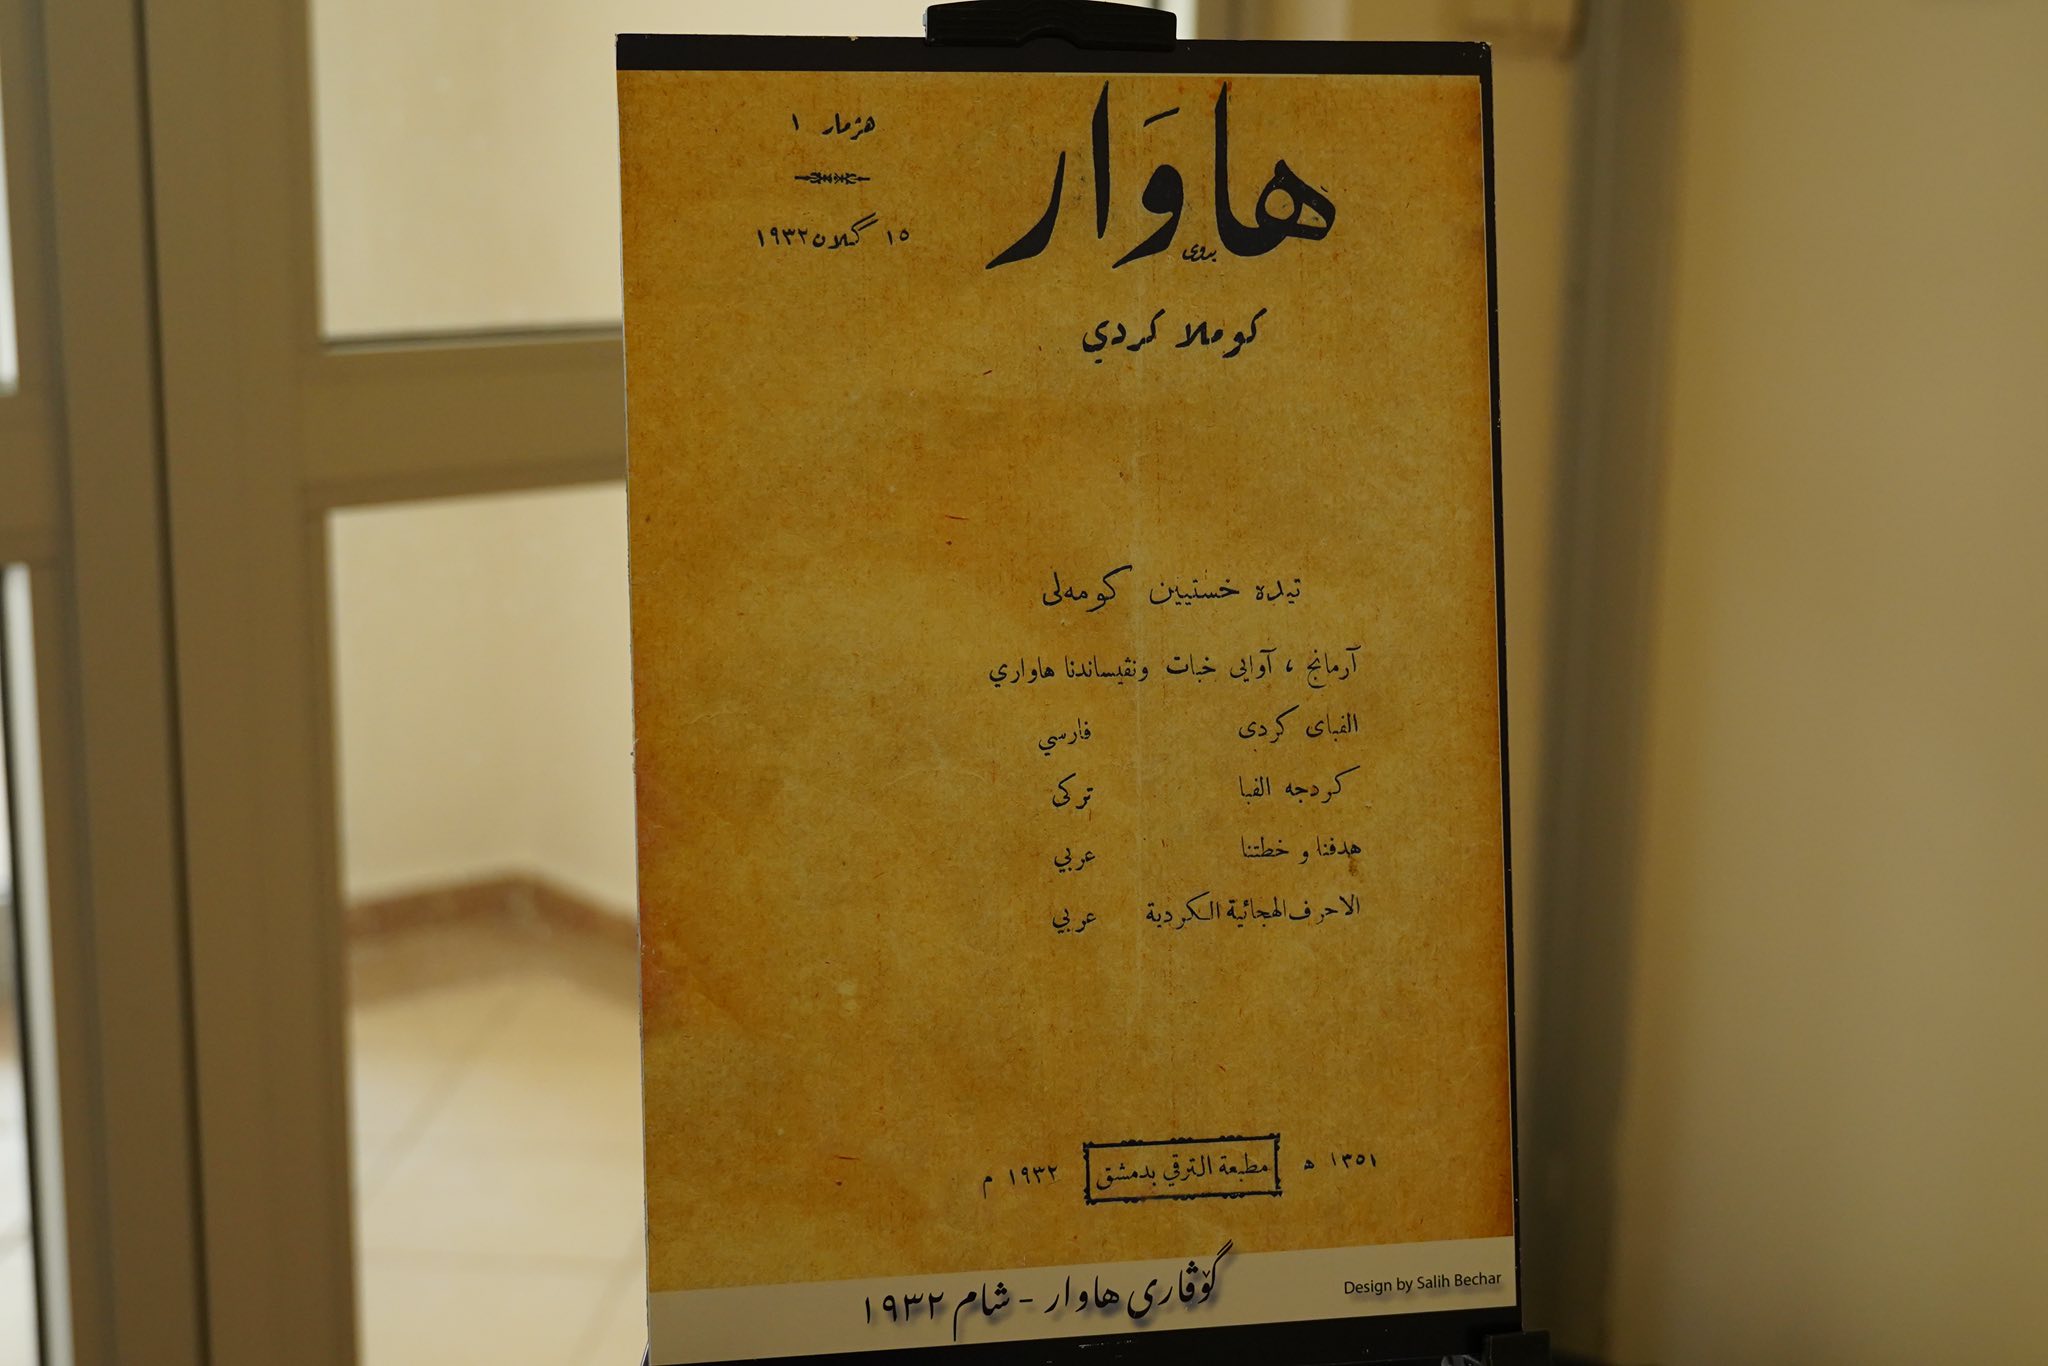 هاوار
بدوی
هژمار ١
١٥ گلان ١٩٣٢
کوملا کردي
تیده خستیین کومەلی
آرمانج ، آوایی خبات ونڤیساندنا هاواري
الفبای کردی فارسي
کردجه الفبا ترکی
هدفنا و خطتنا عربي
الاحرف الهجائية الكردية عربي
١٣٥١ ه مطبعة الترقي بدمشق ١٩٣٢ م
گۆڤاری هاوار - شام ١٩٣٢
Design by Salih Bechar